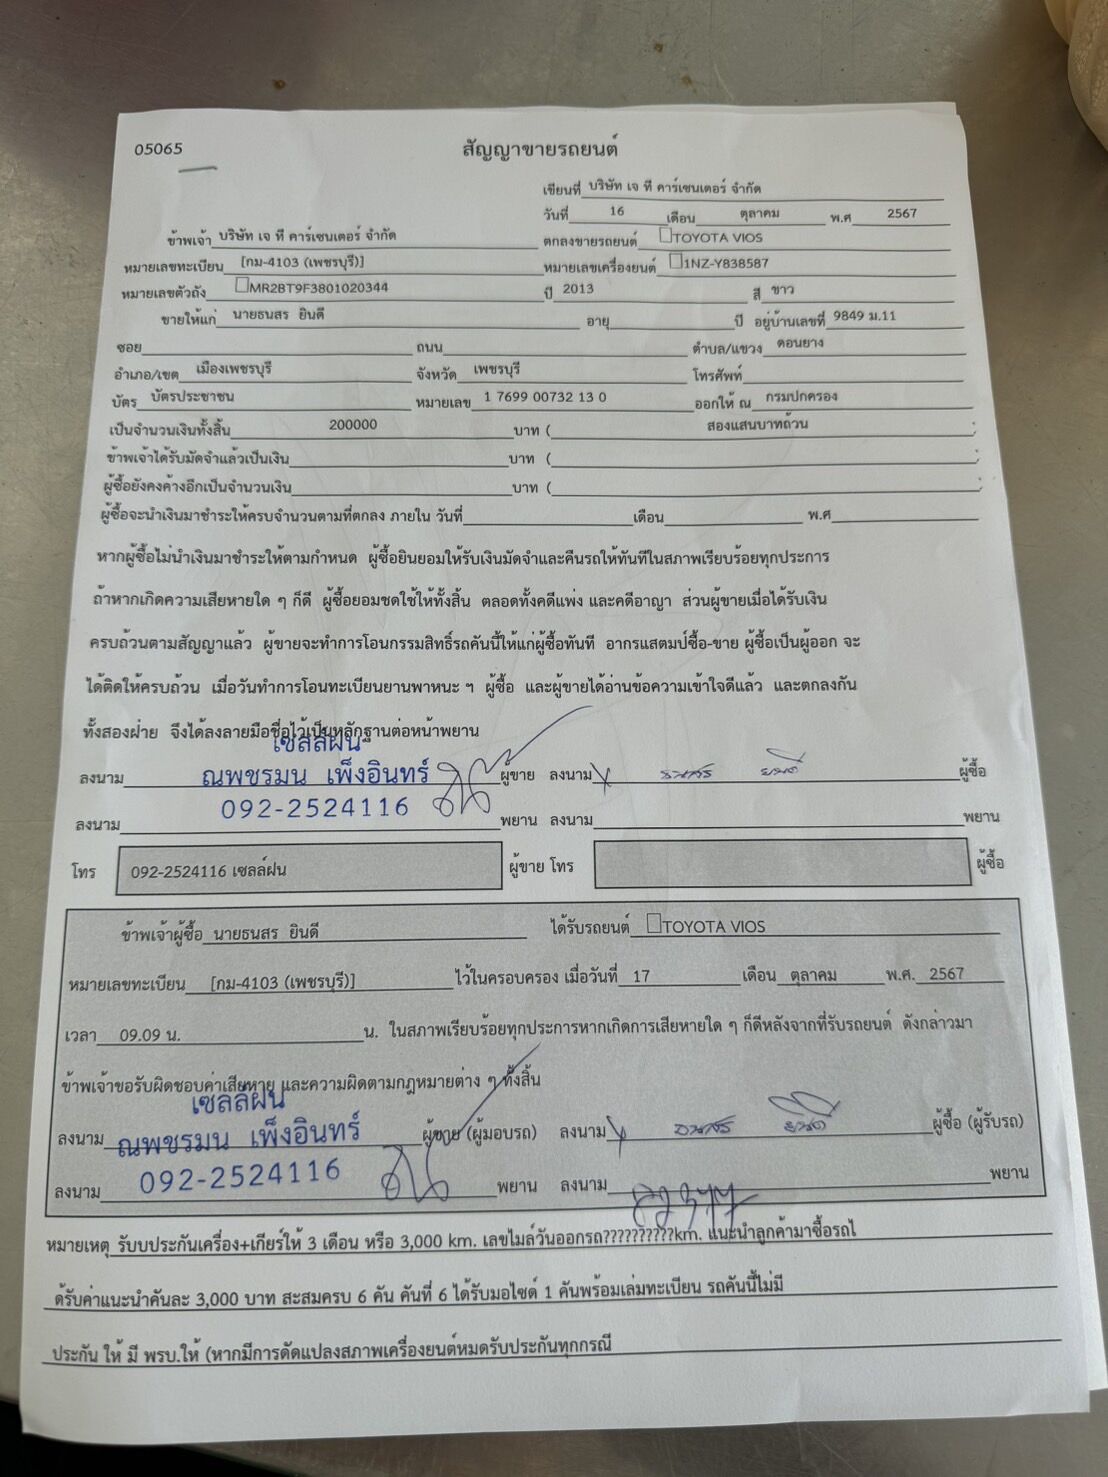 05065
สัญญาขายรถยนต์
เขียนที่ บริษัท เจ ที คาร์เซนเตอร์ จำกัด
วันที่ 16 เดือน ตุลาคม พ.ศ 2567
ข้าพเจ้า บริษัท เจ ที คาร์เซนเตอร์ จำกัด ตกลงขายรถยนต์ TOYOTA VIOS
หมายเลขทะเบียน [กม-4103 (เพชรบุรี)] หมายเลขเครื่องยนต์ 1NZ-Y838587
หมายเลขตัวถัง MR2BT9F3801020344 ปี 2013 สี ขาว
ขายให้แก่ นายธนสร ยินดี อายุ ปี อยู่บ้านเลขที่ 9849 ม.11
ซอย ถนน ตำบล/แขวง ดอนยาง
อำเภอ/เขต เมืองเพชรบุรี จังหวัด เพชรบุรี โทรศัพท์
บัตร บัตรประชาชน หมายเลข 1 7699 00732 13 0 ออกให้ ณ กรมปกครอง
เป็นจำนวนเงินทั้งสิ้น 200000 บาท ( สองแสนบาทถ้วน
ข้าพเจ้าได้รับมัดจำแล้วเป็นเงิน บาท (
ผู้ซื้อยังคงค้างอีกเป็นจำนวนเงิน บาท (
ผู้ซื้อจะนำเงินมาชำระให้ครบจำนวนตามที่ตกลง ภายใน วันที่ เดือน พ.ศ
หากผู้ซื้อไม่นำเงินมาชำระให้ตามกำหนด ผู้ซื้อยินยอมให้รับเงินมัดจำและคืนรถให้ทันทีในสภาพเรียบร้อยทุกประการ
ถ้าหากเกิดความเสียหายใด ๆ ก็ดี ผู้ซื้อยอมชดใช้ให้ทั้งสิ้น ตลอดทั้งคดีแพ่ง และคดีอาญา ส่วนผู้ขายเมื่อได้รับเงิน
ครบถ้วนตามสัญญาแล้ว ผู้ขายจะทำการโอนกรรมสิทธิ์รถคันนี้ให้แก่ผู้ซื้อทันที อากรแสตมป์ซื้อ-ขาย ผู้ซื้อเป็นผู้ออก จะ
ได้ติดให้ครบถ้วน เมื่อวันทำการโอนทะเบียนยานพาหนะ ฯ ผู้ซื้อ และผู้ขายได้อ่านข้อความเข้าใจดีแล้ว และตกลงกัน
ทั้งสองฝ่าย จึงได้ลงลายมือชื่อไว้เป็นหลักฐานต่อหน้าพยาน
เซลล์ฝน
ลงนาม ณพชรมน เพ็งอินทร์ ผู้ขาย ลงนาม ธนสร ยินดี ผู้ซื้อ
092-2524116
ลงนาม พยาน ลงนาม พยาน
โทร 092-2524116 เซลล์ฝน ผู้ขาย โทร ผู้ซื้อ
ข้าพเจ้าผู้ซื้อ นายธนสร ยินดี ได้รับรถยนต์ TOYOTA VIOS
หมายเลขทะเบียน [กม-4103 (เพชรบุรี)] ไว้ในครอบครอง เมื่อวันที่ 17 เดือน ตุลาคม พ.ศ. 2567
เวลา 09.09 น. น. ในสภาพเรียบร้อยทุกประการหากเกิดการเสียหายใด ๆ ก็ดีหลังจากที่รับรถยนต์ ดังกล่าวมา
ข้าพเจ้าขอรับผิดชอบค่าเสียหาย และความผิดตามกฎหมายต่าง ๆ ทั้งสิ้น
เซลล์ฝน
ลงนาม ณพชรมน เพ็งอินทร์ ผู้ขาย (ผู้มอบรถ) ลงนาม ธนสร ยินดี ผู้ซื้อ (ผู้รับรถ)
ลงนาม 092-2524116 พยาน ลงนาม พยาน
หมายเหตุ รับบประกันเครื่อง+เกียร์ให้ 3 เดือน หรือ 3,000 km. เลขไมล์วันออกรถ??????????km. แนะนำลูกค้ามาซื้อรถไ
ด้รับค่าแนะนำคันละ 3,000 บาท สะสมครบ 6 คัน คันที่ 6 ได้รับมอไซด์ 1 คันพร้อมเล่มทะเบียน รถคันนี้ไม่มี
ประกัน ให้ มี พรบ.ให้ (หากมีการดัดแปลงสภาพเครื่องยนต์หมดรับประกันทุกกรณี